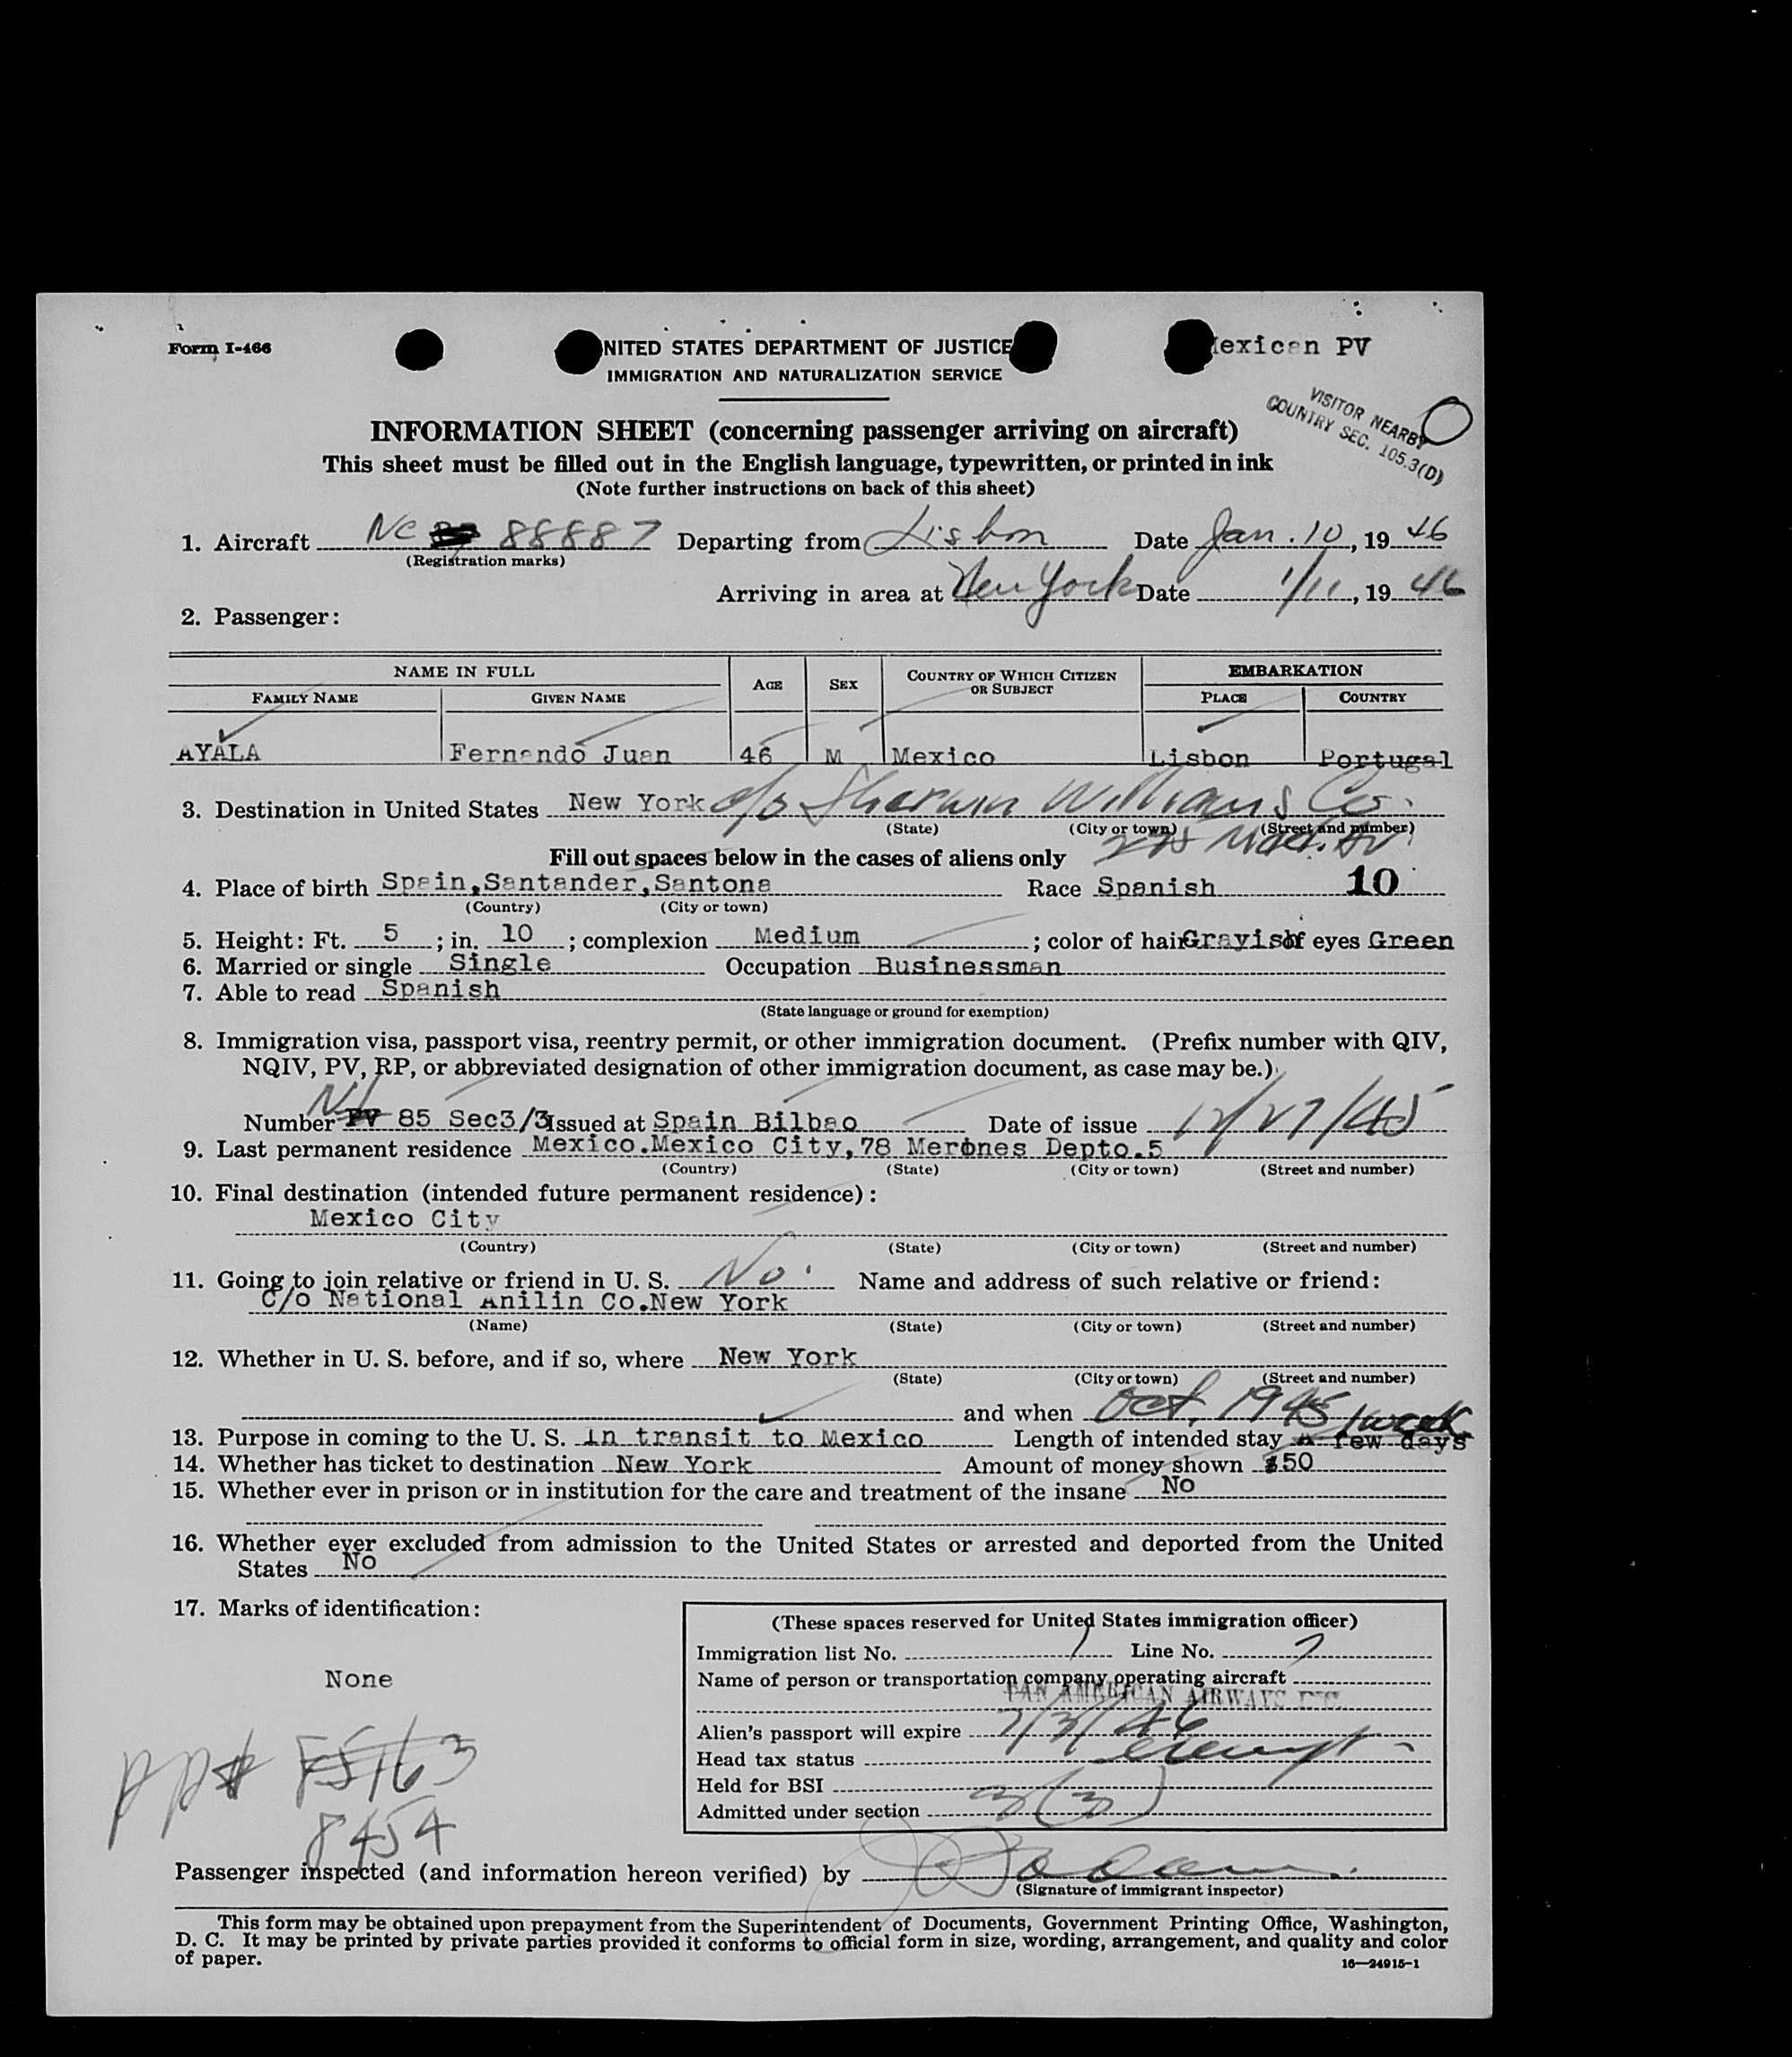 Form I-466
NITED STATES DEPARTMENT OF JUSTICE
exican PV
IMMIGRATION AND NATURALIZATION SERVICE
VISITOR NEARBY
COUNTRY SEC. 105.3(D)
INFORMATION SHEET (concerning passenger arriving on aircraft)
This sheet must be filled out in the English language, typewritten, or printed in ink
(Note further instructions on back of this sheet)
1. Aircraft NC 88887 Departing from Lisbon Date Jan. 10, 19 46
(Registration marks)
Arriving in area at New York Date 1/11, 19 46
2. Passenger:
NAME IN FULL AGE SEX COUNTRY OF WHICH CITIZEN OR SUBJECT EMBARKATION
FAMILY NAME GIVEN NAME PLACE COUNTRY
AYALA Fernando Juan 46 M Mexico Lisbon Portugal
3. Destination in United States New York c/o Sherwin Williams Co.
(State) (City or town) (Street and number)
Fill out spaces below in the cases of aliens only
4. Place of birth Spain,Santander,Santona Race Spanish 10
(Country) (City or town)
5. Height: Ft. 5 ; in. 10 ; complexion Medium ; color of hair Grayish of eyes Green
6. Married or single Single Occupation Businessman
7. Able to read Spanish
(State language or ground for exemption)
8. Immigration visa, passport visa, reentry permit, or other immigration document. (Prefix number with QIV,
NQIV, PV, RP, or abbreviated designation of other immigration document, as case may be.)
Number PV 85 Sec3/3 Issued at Spain Bilbao Date of issue 12/27/45
9. Last permanent residence Mexico.Mexico City,78 Merones Depto.5
(Country) (State) (City or town) (Street and number)
10. Final destination (intended future permanent residence):
Mexico City
(Country) (State) (City or town) (Street and number)
11. Going to join relative or friend in U. S. No. Name and address of such relative or friend:
C/o National Anilin Co.New York
(Name) (State) (City or town) (Street and number)
12. Whether in U. S. before, and if so, where New York
(State) (City or town) (Street and number)
and when Oct. 1945
1 week
13. Purpose in coming to the U. S. in transit to Mexico Length of intended stay A few days
14. Whether has ticket to destination New York Amount of money shown $50
15. Whether ever in prison or in institution for the care and treatment of the insane No
16. Whether ever excluded from admission to the United States or arrested and deported from the United
States No
17. Marks of identification:
None
pp# F5163
8454
(These spaces reserved for United States immigration officer)
Immigration list No. 1 Line No. 7
Name of person or transportation company operating aircraft
PAN AMERICAN AIRWAYS INC.
Alien's passport will expire 7/3/46
Head tax status exempt
Held for BSI
Admitted under section 3(3)
Passenger inspected (and information hereon verified) by
(Signature of immigrant inspector)
This form may be obtained upon prepayment from the Superintendent of Documents, Government Printing Office, Washington,
D. C. It may be printed by private parties provided it conforms to official form in size, wording, arrangement, and quality and color
of paper.
16—24915-1